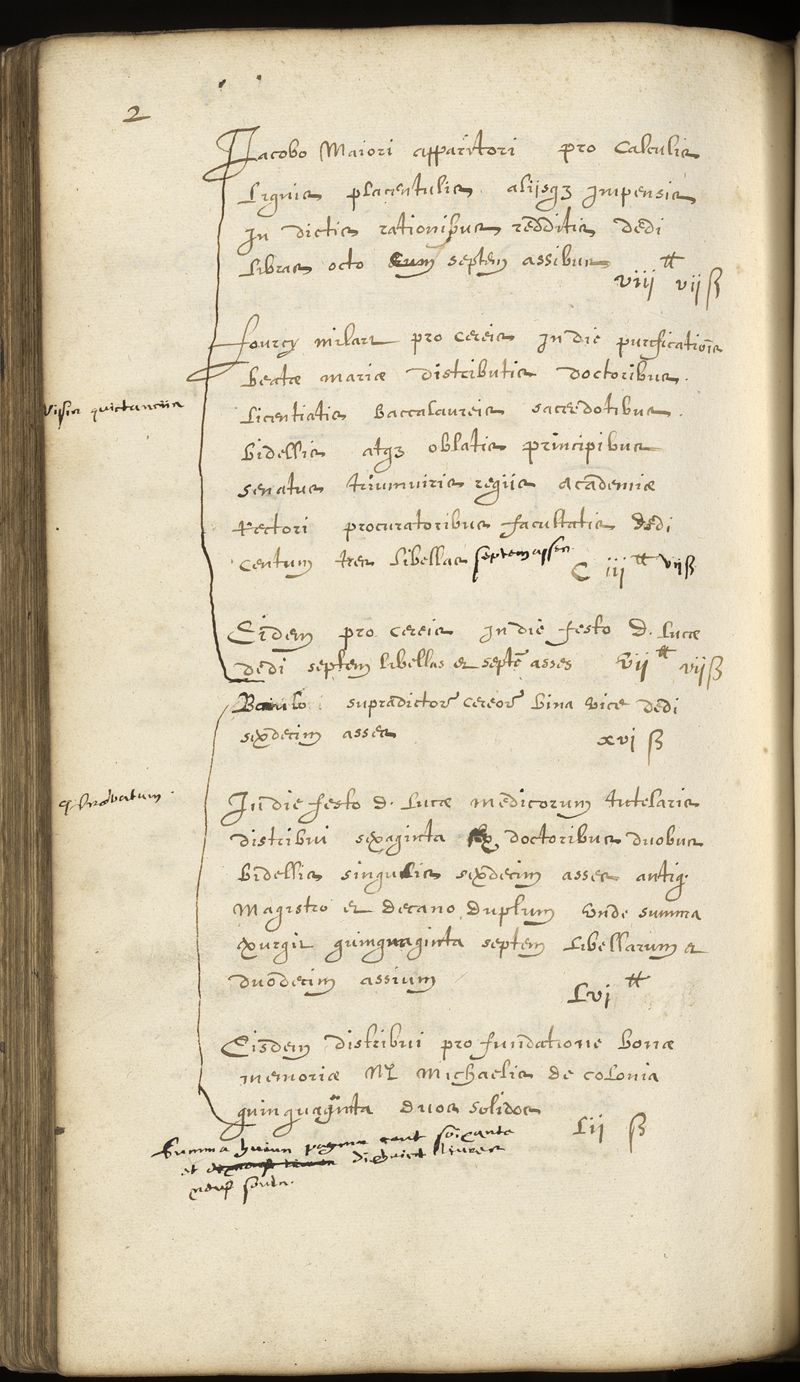 2
Jacobo Maiori apparitori pro calculis
Lignis placentulis alijsqз impensis
In dictis rationibus redditis dedi
Libras octo cum septem assibus
viii tt vij ß
Fourcy milart pro cereis in die purificationis
Beatæ mariæ distributis doctoribus.
Visa quictancia
Licentiatis Baccalaureis sacerdotibus.
Bidellis atqз oblatis principibus
senatus triumviris regiis Academiæ
Rectori procuratoribus facultatis dedi
centum tres libellas septem assen
C iij tt vij ß
Eidem pro cereis in die festo D. Lucæ
dedi septem libellas et septē asses vij tt vij ß
supradictor cereor bina vice dedi
sexdecim asses xvj ß
In die festo D. Lucæ medicorum tutelaris
probatum.
distribui sexaginta doctoribus duobus
Bidellis singulis sexdecim asses antiq.
Magistro et decano duplum unde summa
exurgit quinquaginta septem libellarum et
duodecim assium
Lvi tt
Eisdem distribui pro fundatione bonæ
memoriæ M Michaelis de colonia
quinquaginta duos solidos
Lij ß
Summa huius pagine cent soixante
et dixhuict livres
neuf soulz.